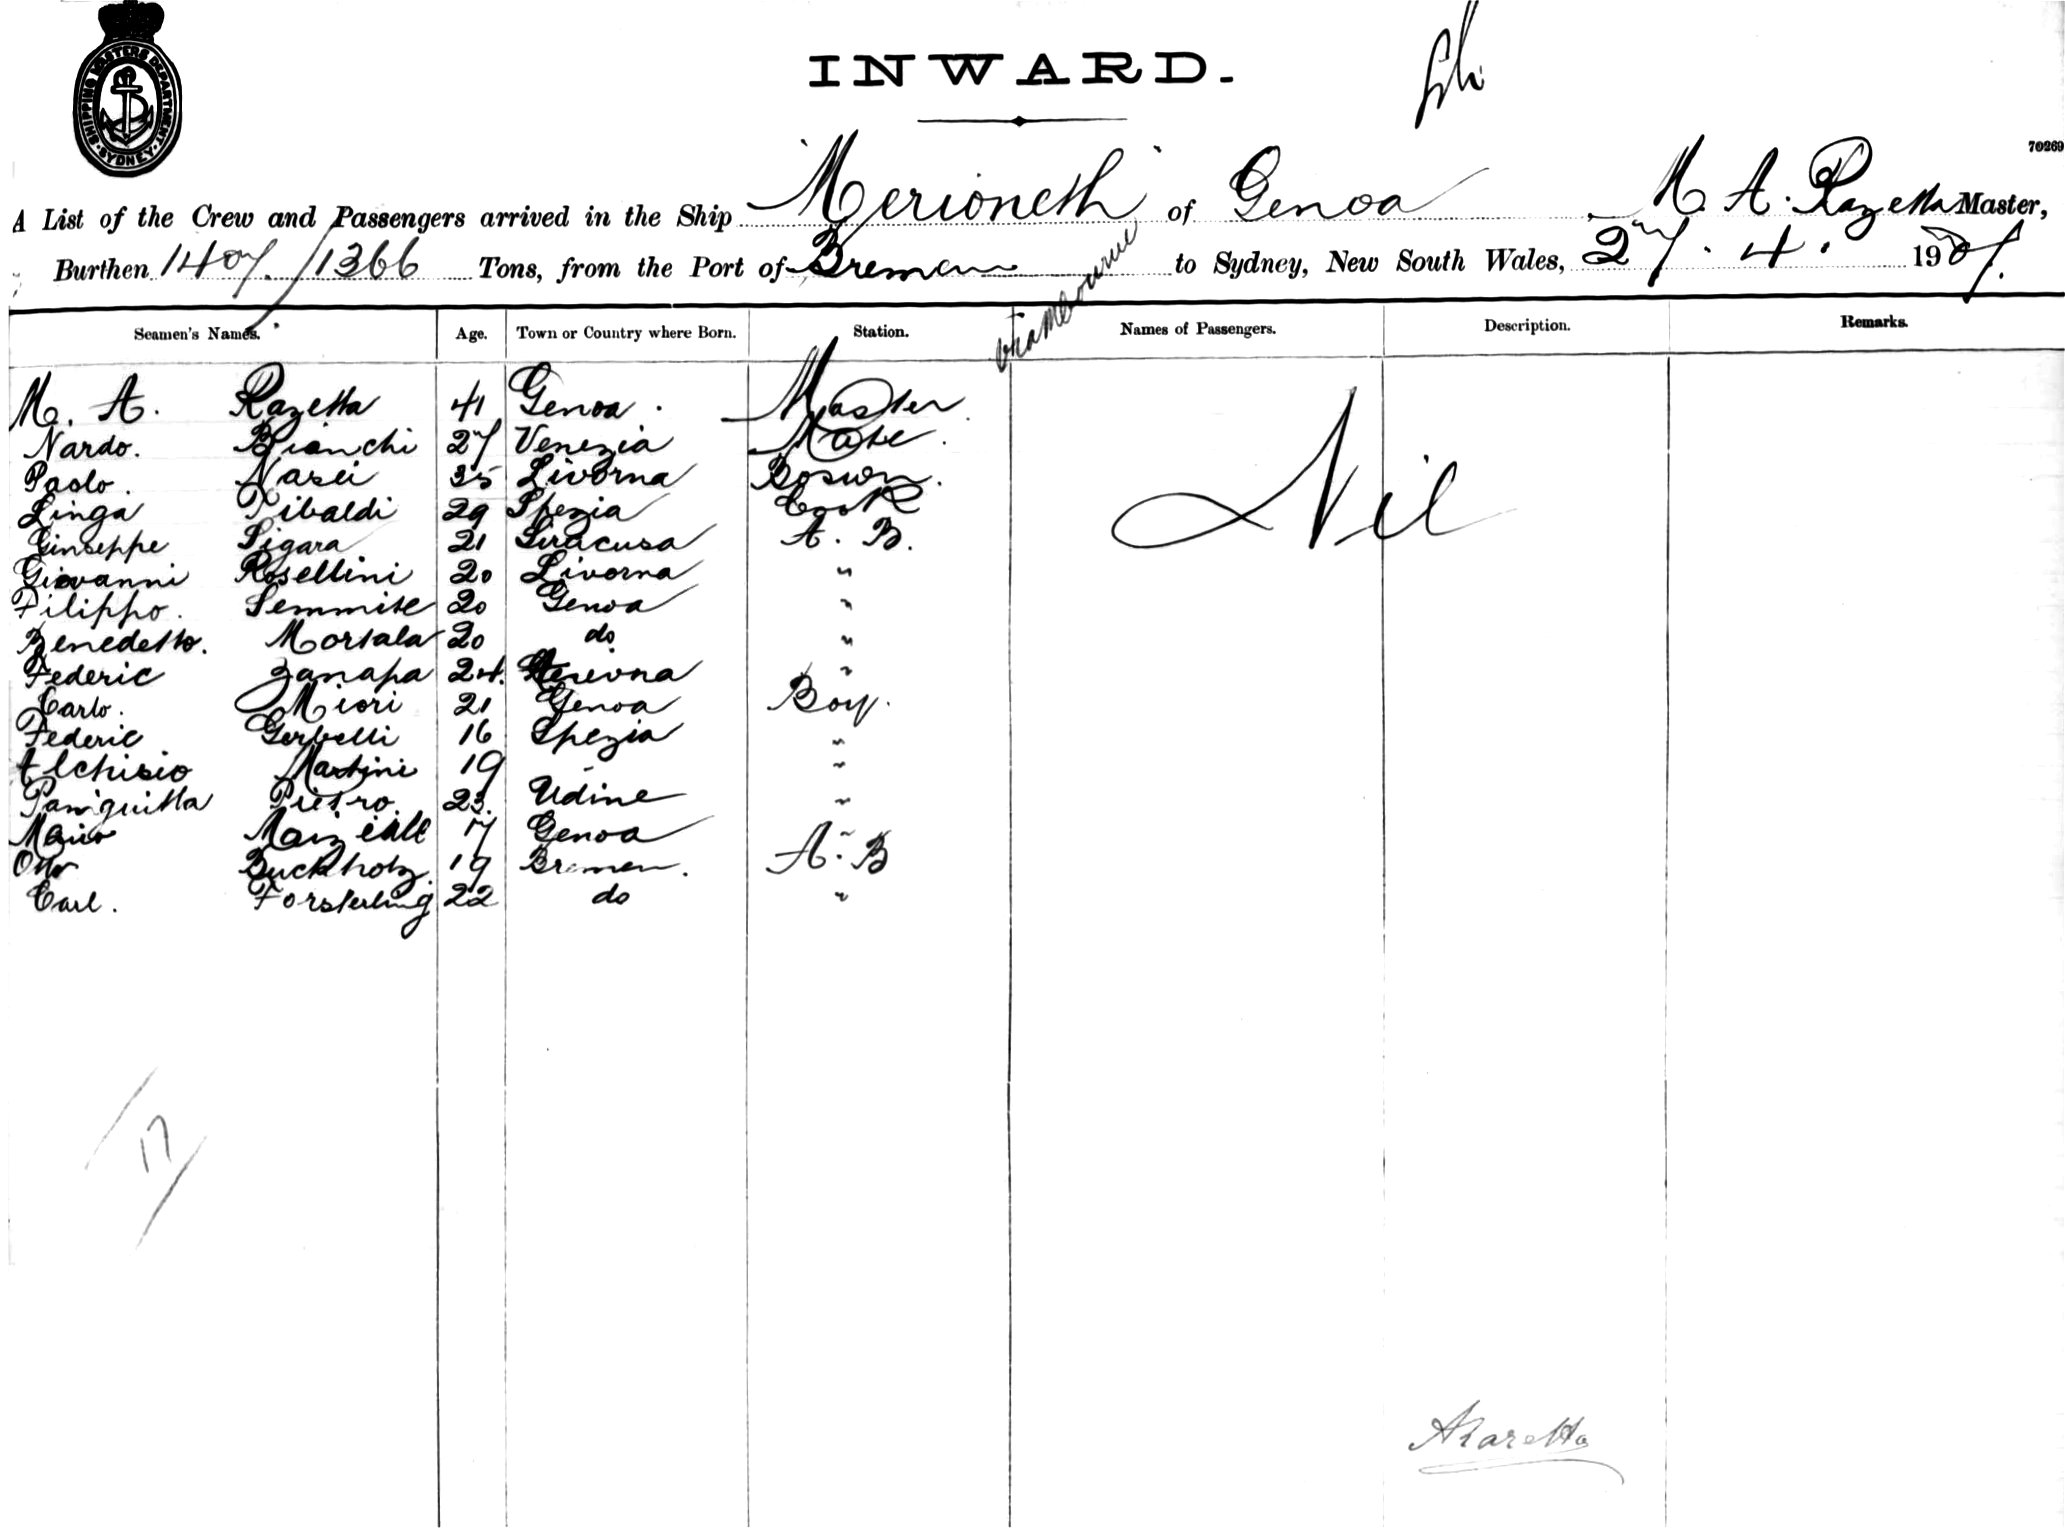 SHIPPING MASTERS DEPARTMENT
SYDNEY
INWARD.
70269
A List of the Crew and Passengers arrived in the Ship "Merioneth" of Genoa, M. A. Razetta Master,
Burthen 1407/1366 Tons, from the Port of Bremen via Melbourne to Sydney, New South Wales, 27. 4. 1907.
Seamen's Names. Age. Town or Country where Born. Station. Names of Passengers. Description. Remarks.
M. A. Razetta 41 Genoa. Master.
Nardo. Bianchi 27 Venezia Mate.
Paolo. Nasei 35 Livorna Boswn.
Linga Tibaldi 29 Spezia Cook
Ginseppe Sigara 21 Siracusa A. B.
Giovanni Rosellini 20 Livorna "
Filippo. Semmite 20 Genoa "
Benedetto. Mortala 20 do "
Federic Zanapa 24. "
Carlo. Miori 21 Genoa Boy.
Federic Gerbelli 16 Spezia "
Martini 19 "
Pietro. 23. Udine "
Mario 17 Genoa "
Otto Buckholz. 19 Bremen. A. B
Carl. Forsterling 22 do "
Nil
17